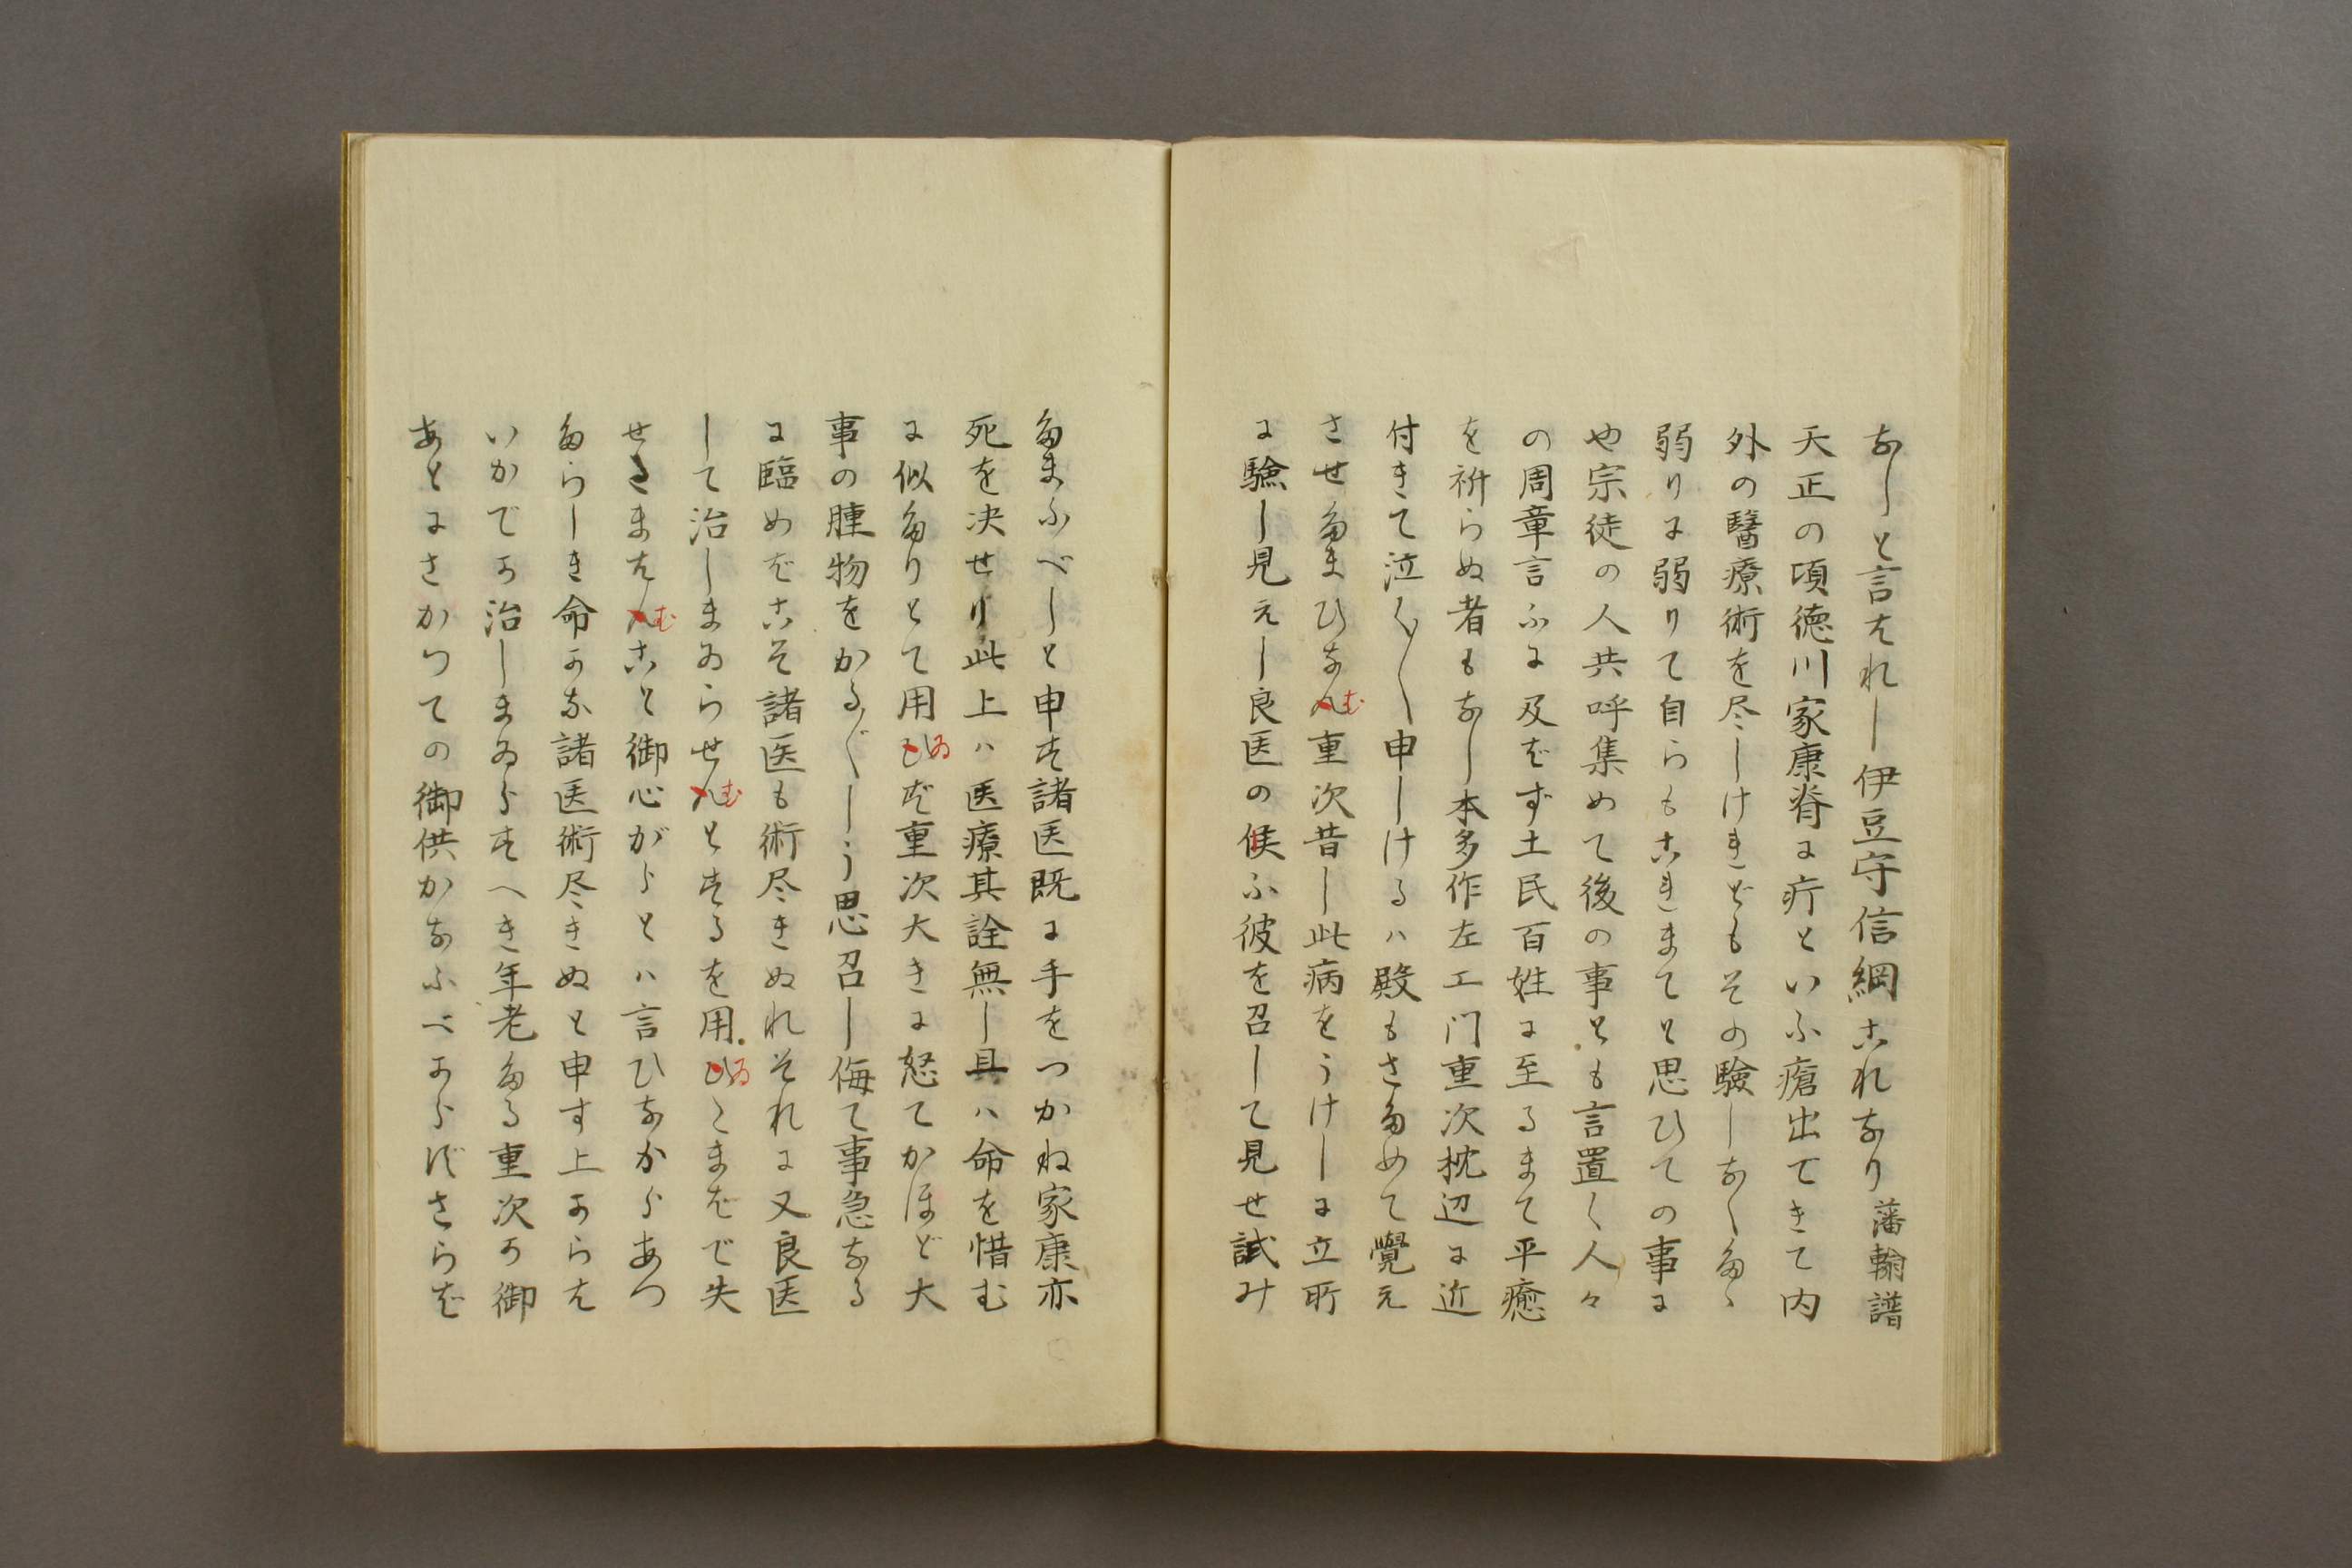 なしと言はれし伊豆守信綱これなり 藩翰譜
天正の頃徳川家康脊に疔といふ瘡出できて内
外の醫療術を尽しけれどもその驗しなくたゝ
弱りに弱りて自らもこれまてと思ひての事に
や宗徒の人共呼集めて後の事とも言置く人々
の周章言ふに及ばず土民百姓に至るまて平癒
を祈らぬ者もなし本多作左エ门重次枕辺に近
付きて泣く〳〵申しけるハ殿もさためて覺え
させたまひなんむ重次昔し此病をうけしに立所
に驗し見えし良医の候ふ彼を召して見せ試み
たまふべしと申す諸医既に手をつかね家康亦
死を决せり此上ハ医療其詮無し且ハ命を惜む
に似たりとて用ひゐず重次大きに怒てかほど大
事の腫物をかる〴〵しう思召し侮て事急なる
に臨めばこそ諸医も術尽きぬれそれに又良医
して治しまゐらせんむとするを用ひゐたまはで失
せさまはんむこと御心がらとハ言ひなからあつ
たらしき命かな諸医術尽きぬと申す上からは
いかでか治しまゐらすへき年老たる重次か御
あとにさかつての御供かなふべからずさらば